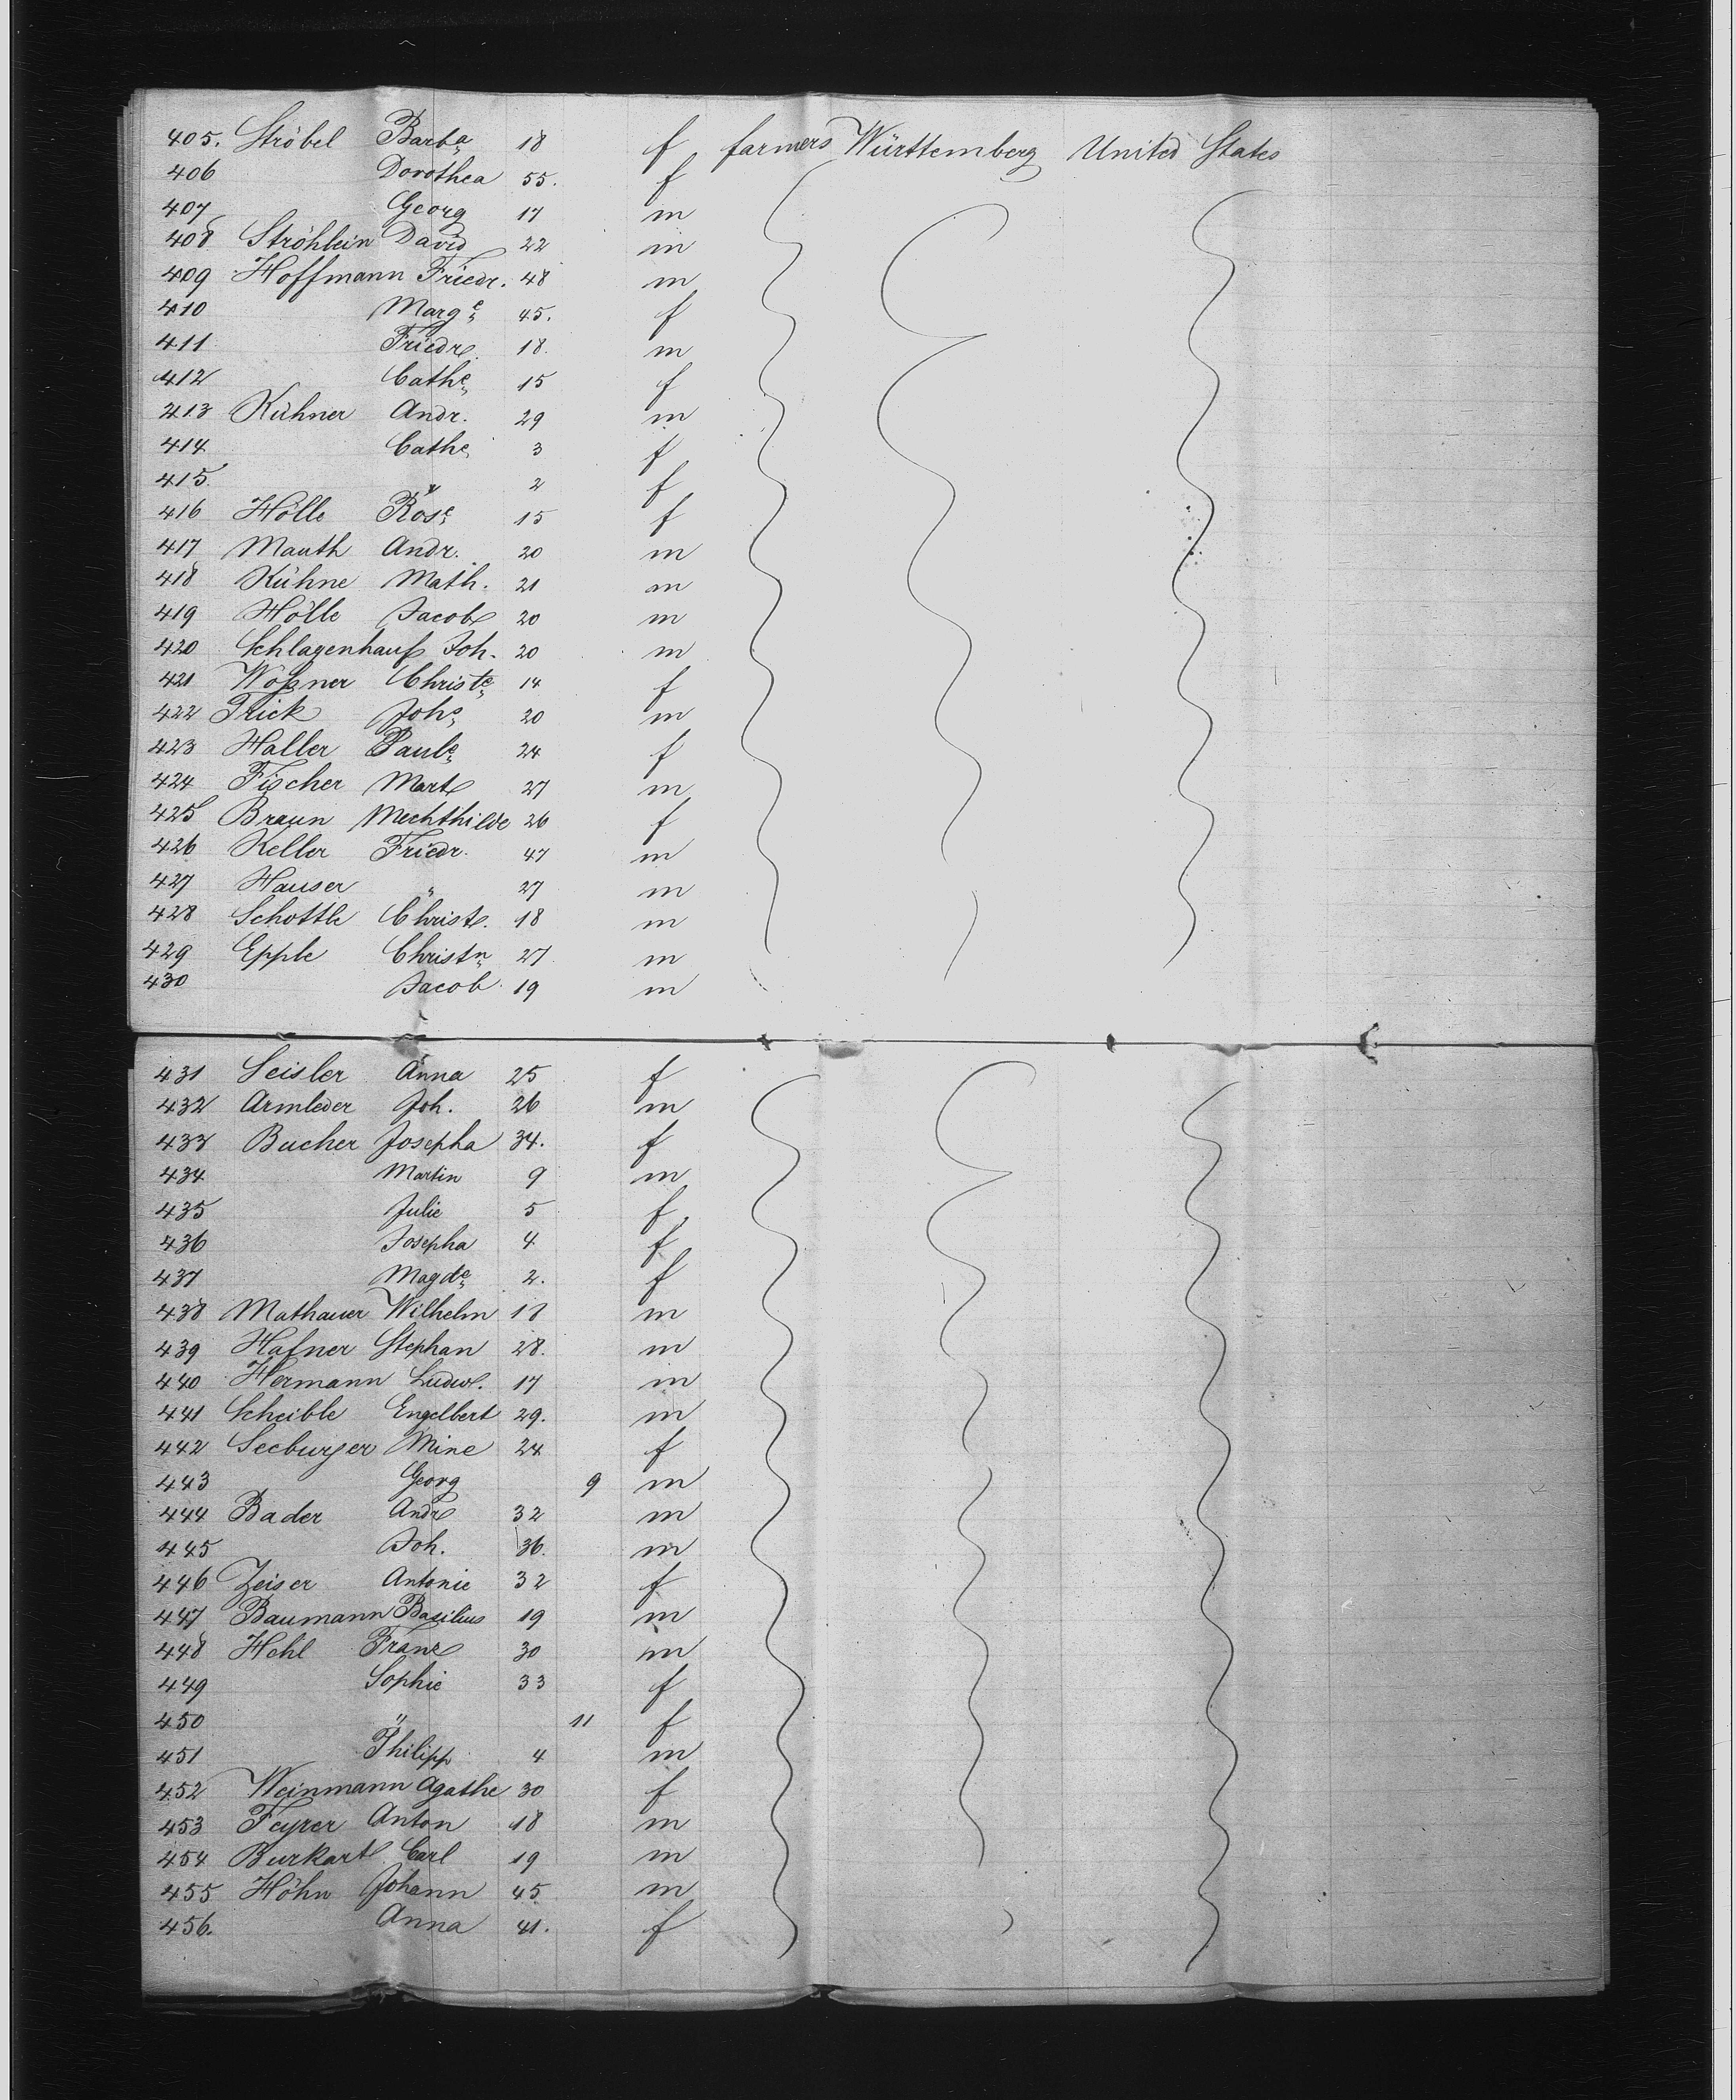 405. Ströbel Barba 18 f farmers Württemberg United States
406 Dorothea 55. f
407 Georg 17 m
408 Ströhlein David 22 m
409 Hoffmann Friedr. 48 m
410 Marge 45. f
411 Friedr. 18. m
412 Cathe 15 f
413 Kühner Andr. 29 m
414 Cathe 3 f
415. " 2 f
416 Hölle Rose 15 f
417 Mauth Andr. 20 m
418 Kühne Math. 21 m
419 Hölle Jacob 20 m
420 Schlagenhauf Joh. 20 m
421 Woßner Christe 14 f
422 Frick Johs 20 m
423 Haller Paule 24 f
424 Fischer Mart 27 m
425 Braun Mechthilde 26 f
426 Keller Friedr. 47 m
427 Hauser " 27 m
428 Schottle Christ. 18 m
429 Epple Christn 27 m
430 Jacob 19 m
431 Seisler Anna 25 f
432 Armleder Joh. 26 m
433 Bucher Josepha 34. f
434 Martin 9 m
435 Julie 5 f
436 Josepha 4 f
437 Magde 2. f
438 Mathauer Wilhelm 18 m
439 Hafner Stephan 28. m
440 Hermann Ludw. 17 m
441 Scheible Engelbert 29. m
442 Seeburger Mine 24 f
443 Georg 9 m
444 Bader Andr 32 m
445 Joh. 36. m
446 Zeiser Antonie 32 f
447 Baumann Basilius 19 m
448 Hehl Franz 30 m
449 Sophie 33 f
450 " 11 f
451 Philipp 4 m
452 Weinmann Agathe 30 f
453 Feyrer Anton 18 m
454 Burkart Carl 19 m
455 Höhn Johann 45 m
456. Anna 41. f